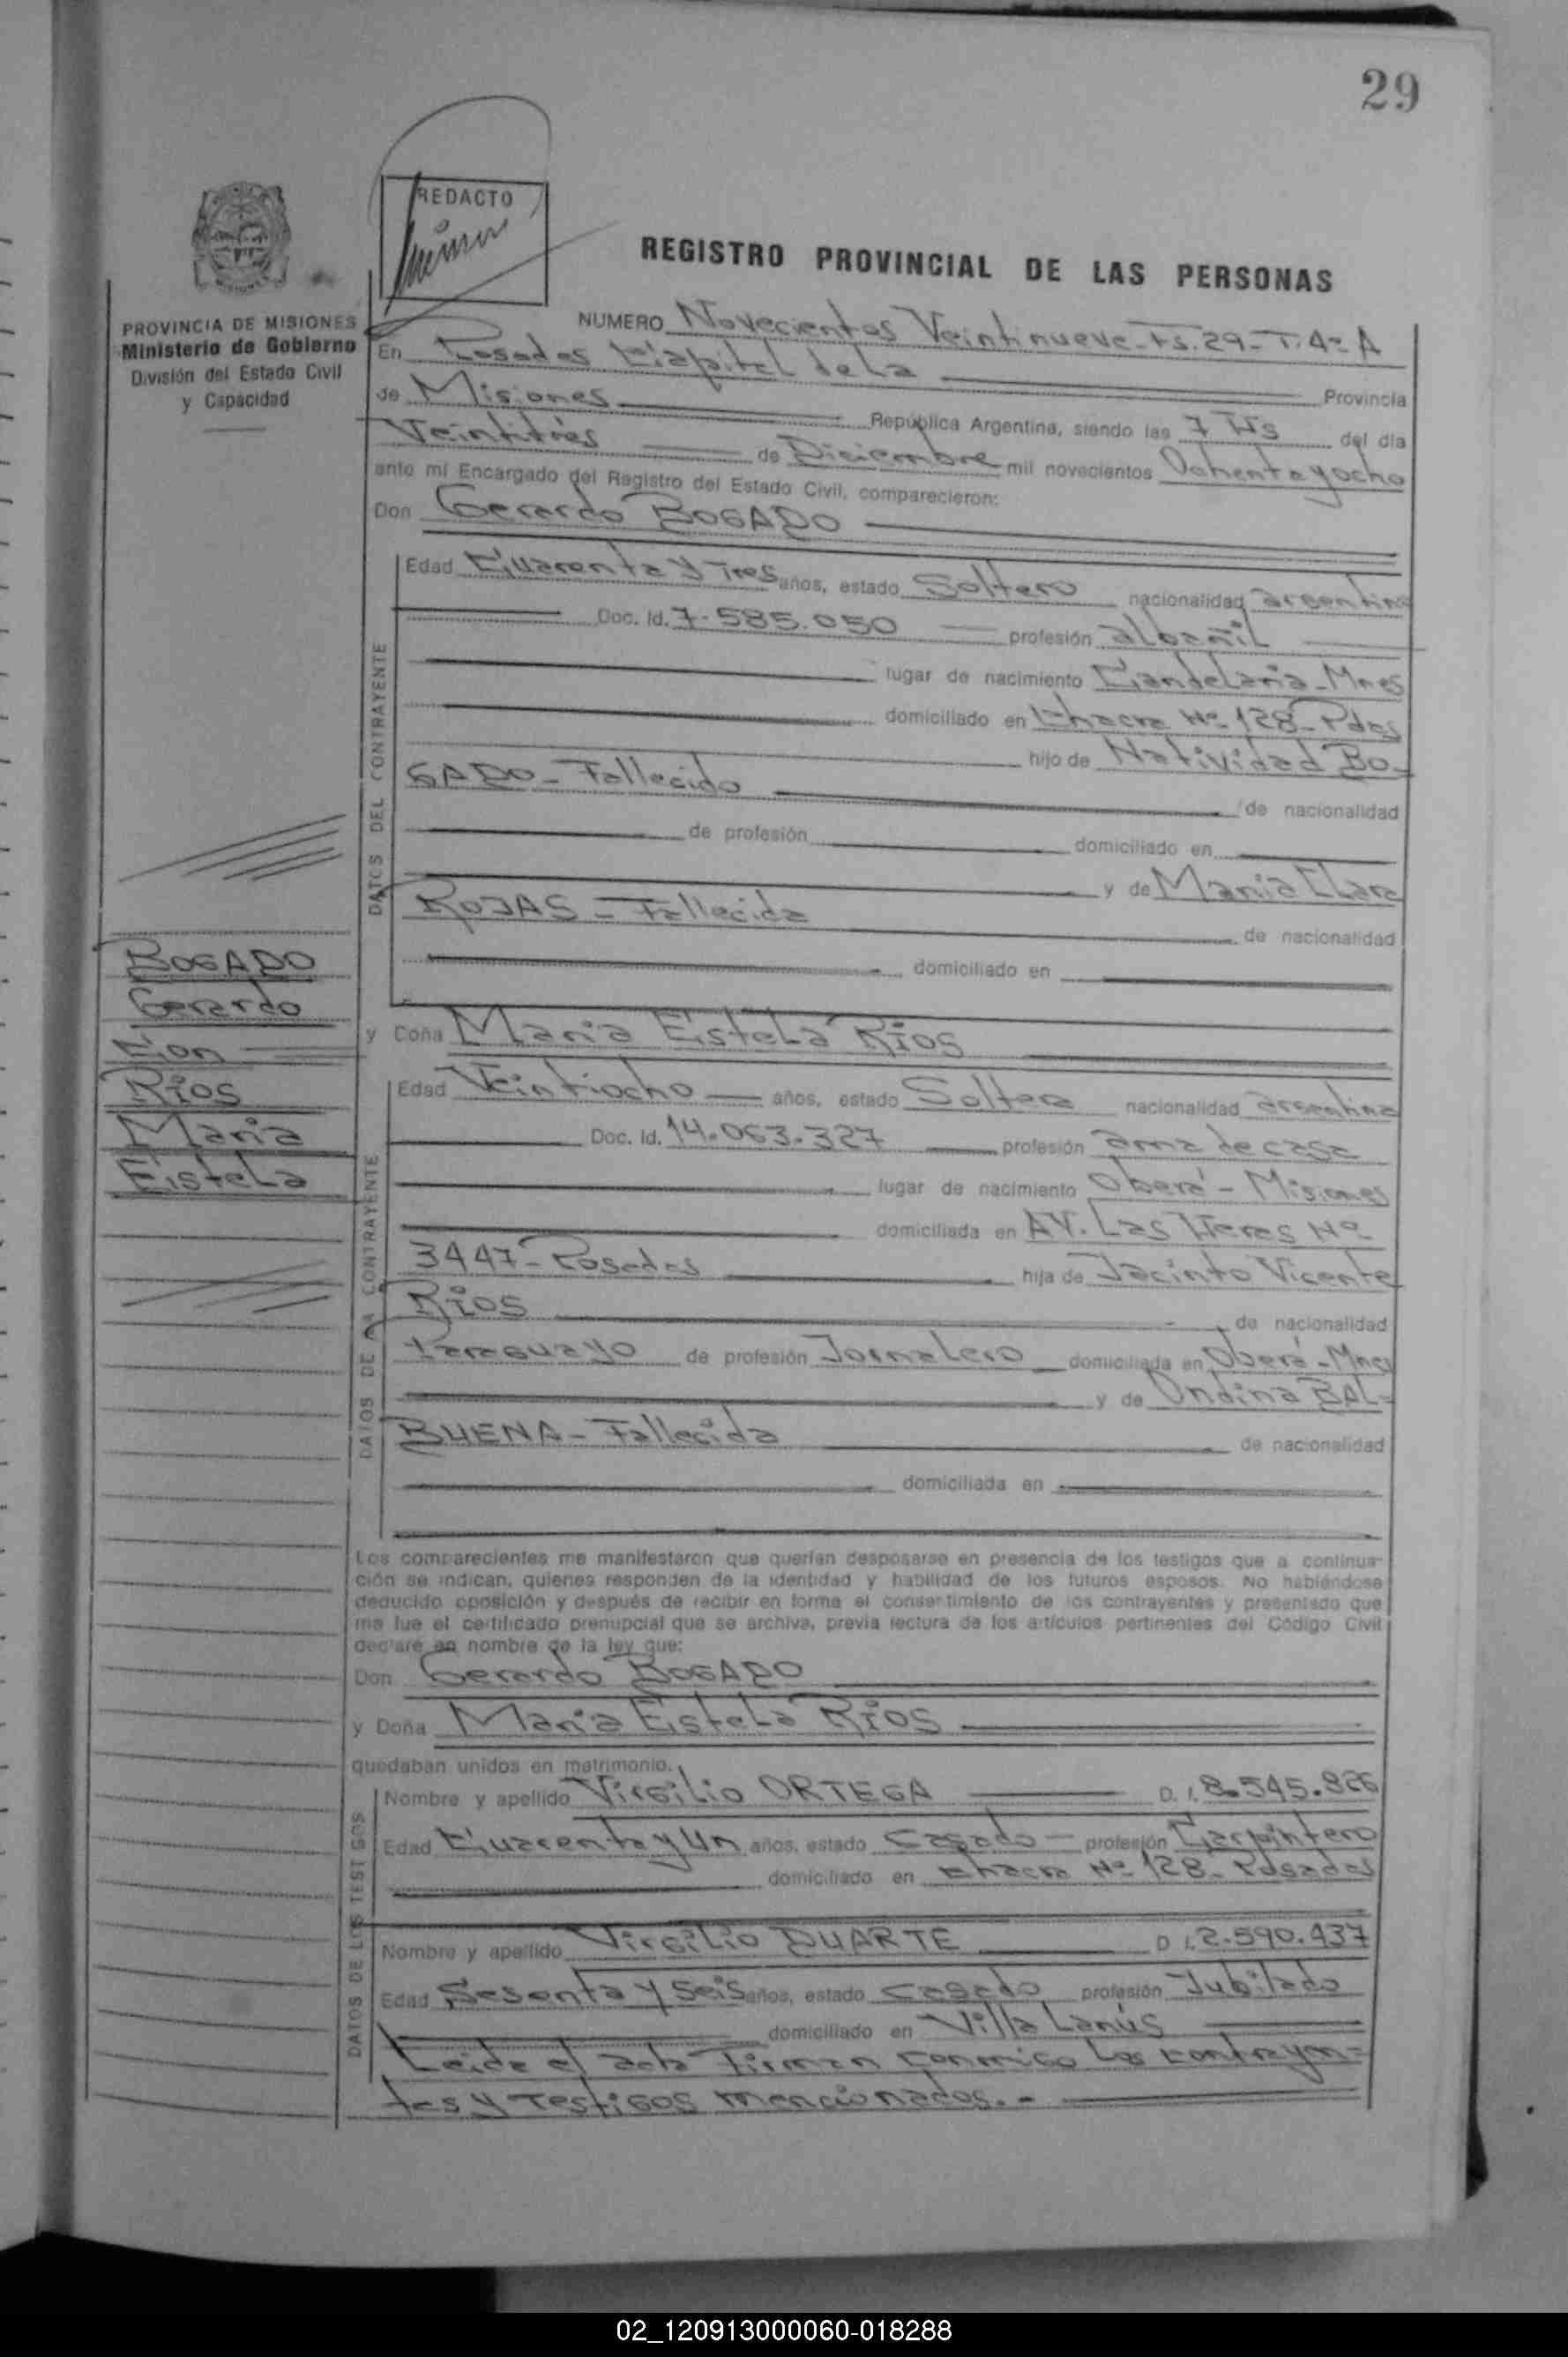 29
REDACTO
REGISTRO PROVINCIAL DE LAS PERSONAS
PROVINCIA DE MISIONES
Ministerio de Gobierno
División del Estado Civil
y Capacidad
NUMERO Novecientos Veintinueve-Fs.29-T.4=A
En Posadas Capital de La Provincia
de Misiones República Argentina, siendo las 7 Hs del día
Veintitrés de Diciembre mil novecientos Ochenta y ocho
ante mí Encargado del Registro del Estado Civil, comparecieron:
Don Gerardo BOGADO
DATOS DEL CONTRAYENTE
Edad Cuarenta y Tres años, estado Soltero nacionalidad argentina
Doc. Id. 7.585.050 profesión albañil
lugar de nacimiento Candelaria-Mnes
domiciliado en Chacra Nº 128-Pdas
hijo de Natividad BO-
GADO-Fallecido de nacionalidad
de profesión domiciliado en
y de María Clara
ROJAS-Fallecida de nacionalidad
domiciliado en
BOGADO
Gerardo
Con
RÍOS
María
Estela
y Doña María Estela RÍOS
DATOS DE LA CONTRAYENTE
Edad Veintiocho años, estado Soltera nacionalidad argentina
Doc. Id. 14.063.327 profesión ama de casa
lugar de nacimiento Oberá-Misiones
domiciliada en AV. Las Heras Nº
3447-Posadas hija de Jacinto Vicente
RÍOS de nacionalidad
Paraguayo de profesión Jornalero domiciliada en Oberá-Mnes
y de Ondina BAL=
BUENA-Fallecida de nacionalidad
domiciliada en
Los comparecientes me manifestaron que querían desposarse en presencia de los testigos que a continua-
ción se indican, quienes responden de la identidad y habilidad de los futuros esposos. No habiéndose
deducido oposición y después de recibir en forma el consertimiento de los contrayentes y presentado que
me fue el certificado prenupcial que se archiva, previa lectura de los artículos pertinentes del Código Civil
declaré en nombre de la ley que:
Don Gerardo BOGADO
y Doña María Estela RÍOS
quedaban unidos en matrimonio.
DATOS DE LOS TESTIGOS
Nombre y apellido Virgilio ORTEGA D. I. 8.545.826
Edad Cuarenta y Un años, estado Casado profesión Carpintero
domiciliado en Chacra Nº 128-Posadas
Nombre y apellido Virgilio DUARTE D I. 2.590.437
Edad Sesenta y Seis años, estado Casado profesión Jubilado
domiciliado en Villa Lanús
Leída el acta Firman conmigo Los contrayen=
tes y Testigos mencionados.-
02_120913000060-018288